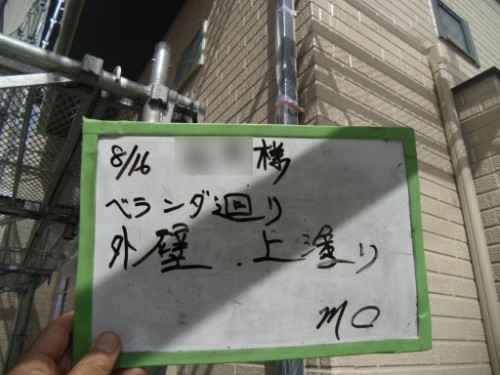 8/16 様
ベランダ廻り
外壁.上塗り
MO